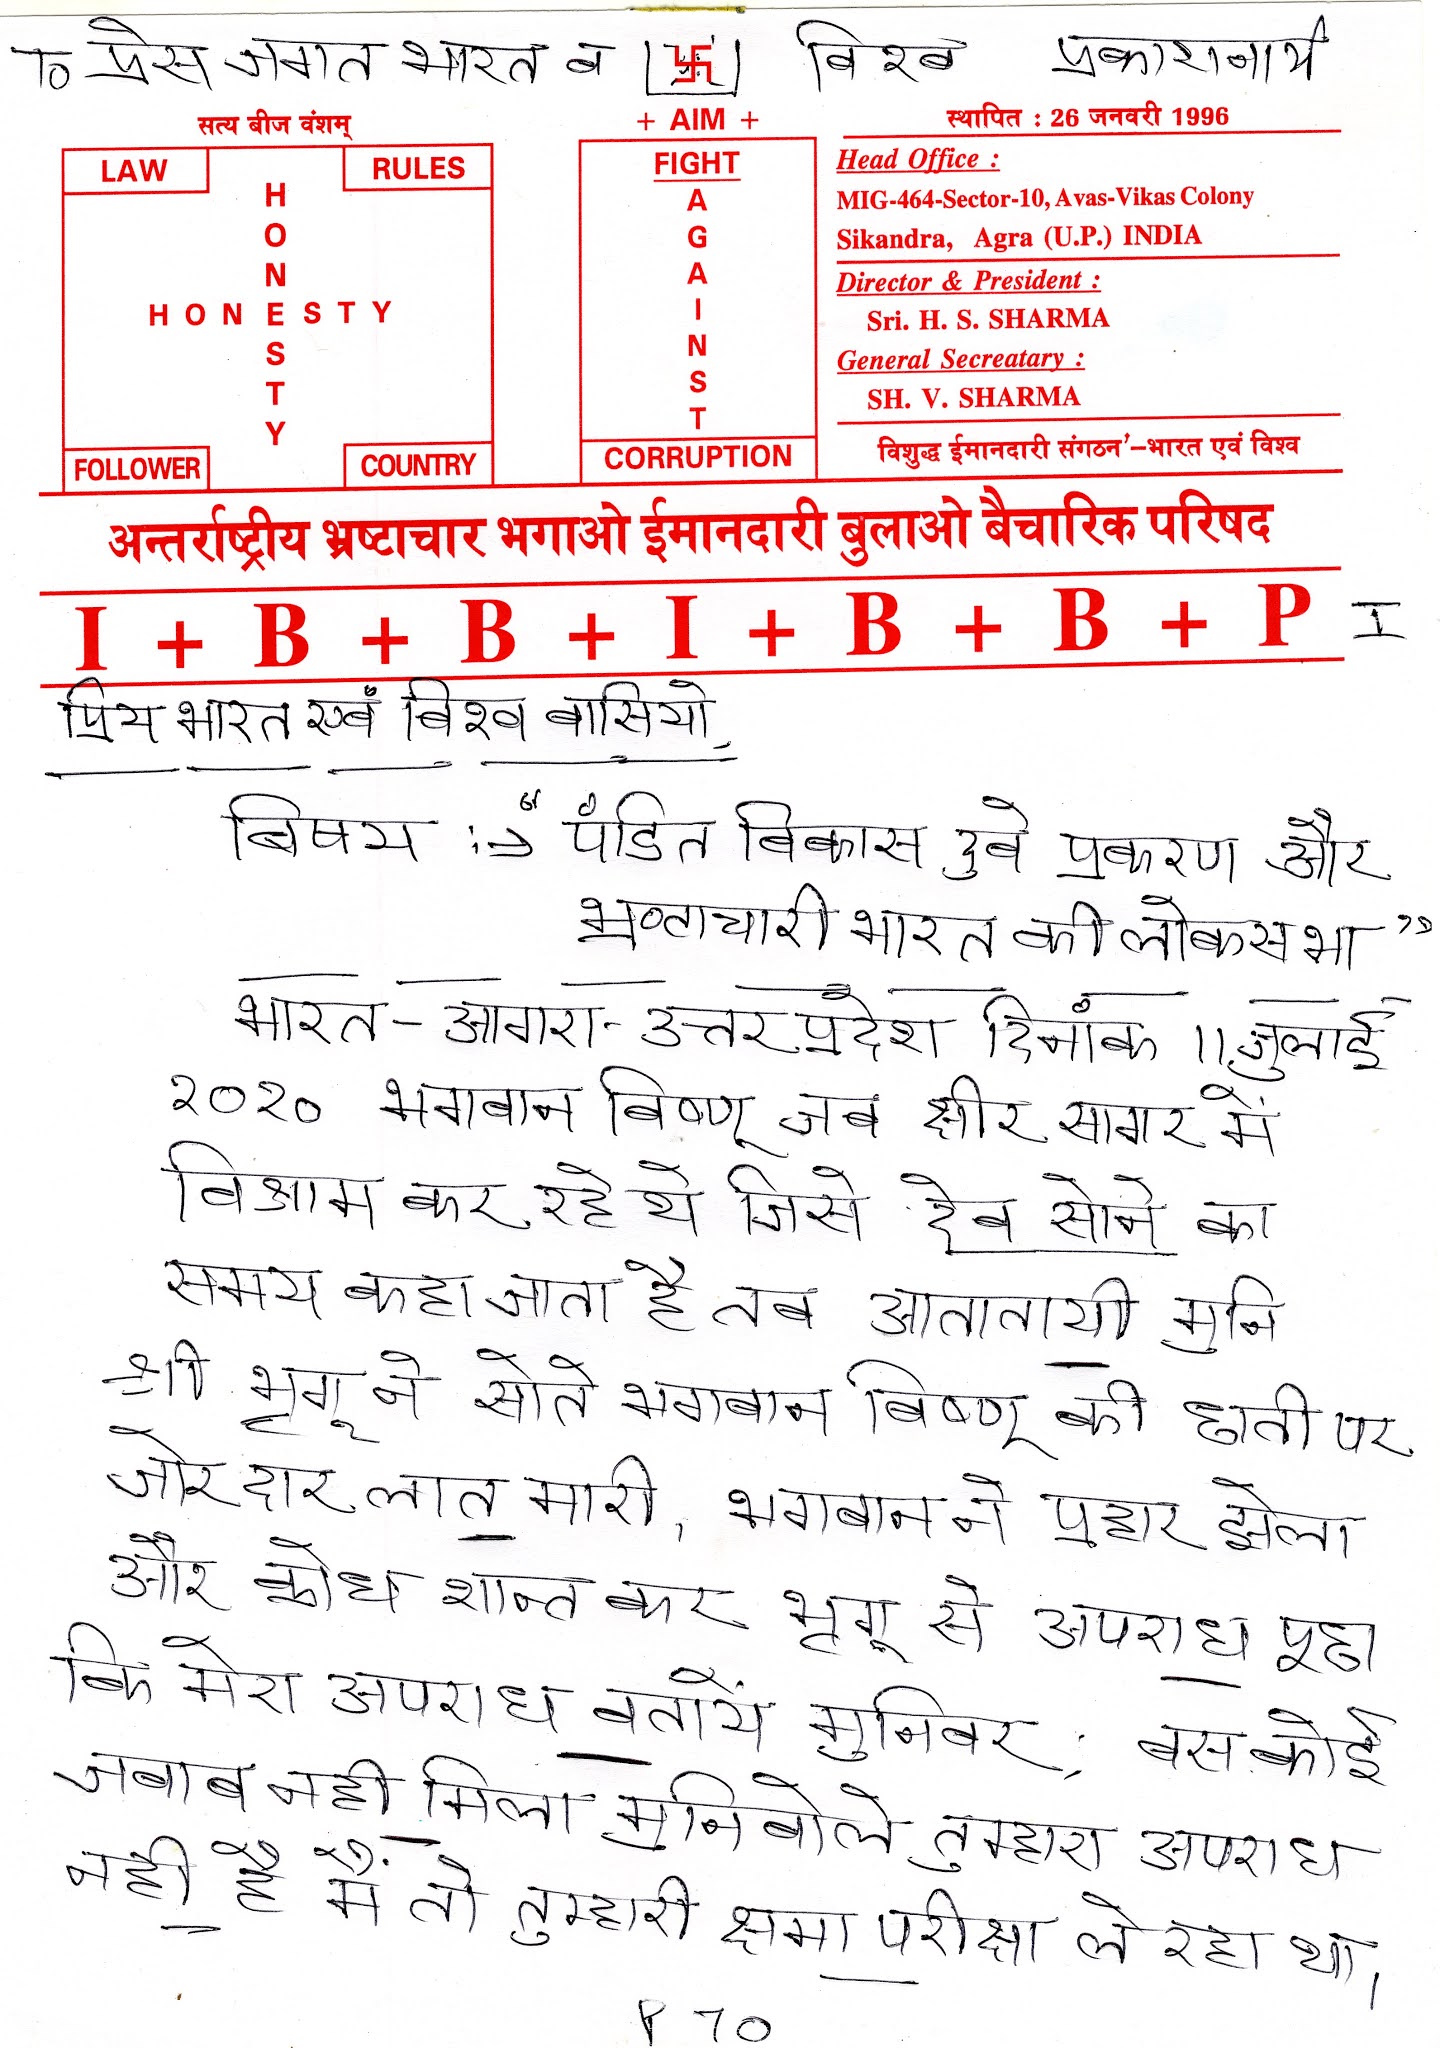 To प्रेस जगत भारत व 卐 विश्व प्रकाशनार्थ
सत्य बीज वंशम्
LAW RULES
HONESTY
HONESTY
FOLLOWER COUNTRY
+ AIM +
FIGHT
AGAINST
CORRUPTION
स्थापित : 26 जनवरी 1996
Head Office :
MIG-464-Sector-10, Avas-Vikas Colony
Sikandra, Agra (U.P.) INDIA
Director & President :
Sri. H. S. SHARMA
General Secreatary :
SH. V. SHARMA
विशुद्ध ईमानदारी संगठन'–भारत एवं विश्व
अन्तर्राष्ट्रीय भ्रष्टाचार भगाओ ईमानदारी बुलाओ बैचारिक परिषद
I + B + B + I + B + B + P I
प्रिय भारत एवं बिश्व बासियो,
बिषय :→ “ पंडित बिकास दुवे प्रकरण और
भ्रष्टाचारी भारत की लोकसभा ”
भारत - आगरा - उत्तर प्रदेश दिनांक 11 जुलाई
२०२० भगबान बिष्णू जब क्षीर सागर में
विश्राम कर रहे थे जिसे देव सोने का
समय कहा जाता है तब आतातायी मुनि
श्री भृगू ने सोते भगबान बिष्णू की छाती पर
जोरदार लात मारी, भगबान ने प्रहार झेला
और क्रोध शान्त कर भृगू से अपराध पूछा
कि मेरा अपराध बतायें मुनिबर; बस कोई
जबाब नही मिला मुनि बोले तुम्हारा अपराध
नही है मैं तो तुम्हारी क्षमा परीक्षा ले रहा था,
P TO